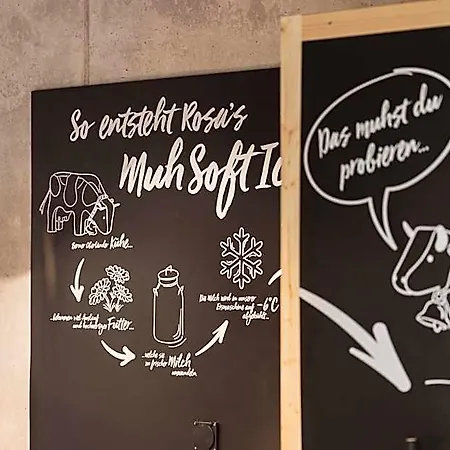 So entsteht Rosa's
Muh Soft Ic
Berner Oberländer Kühe...
...bekommen viel Auslauf
und hochwertiges Futter...
...welche sie
zu frischer Milch
verwandeln.
Die Milch wird in unserer
Eismaschine auf -6°C
abgekühlt...
Das muhst du
probieren...